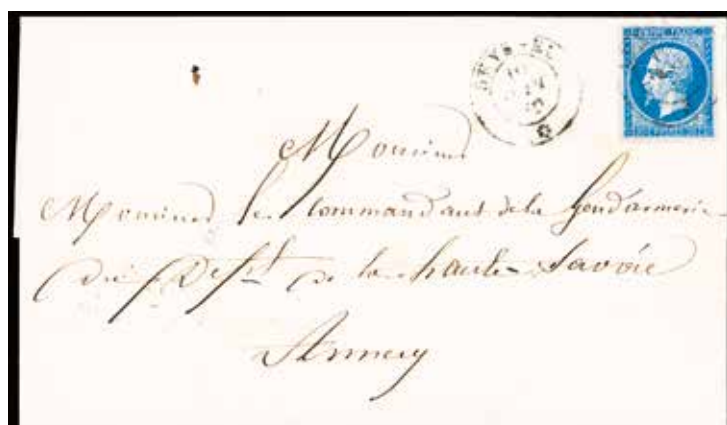 EMPIRE FRANC
Monsieur
Monsieur le commandant de la Gendarmerie
du Dept de la haute Savoie
Annecy